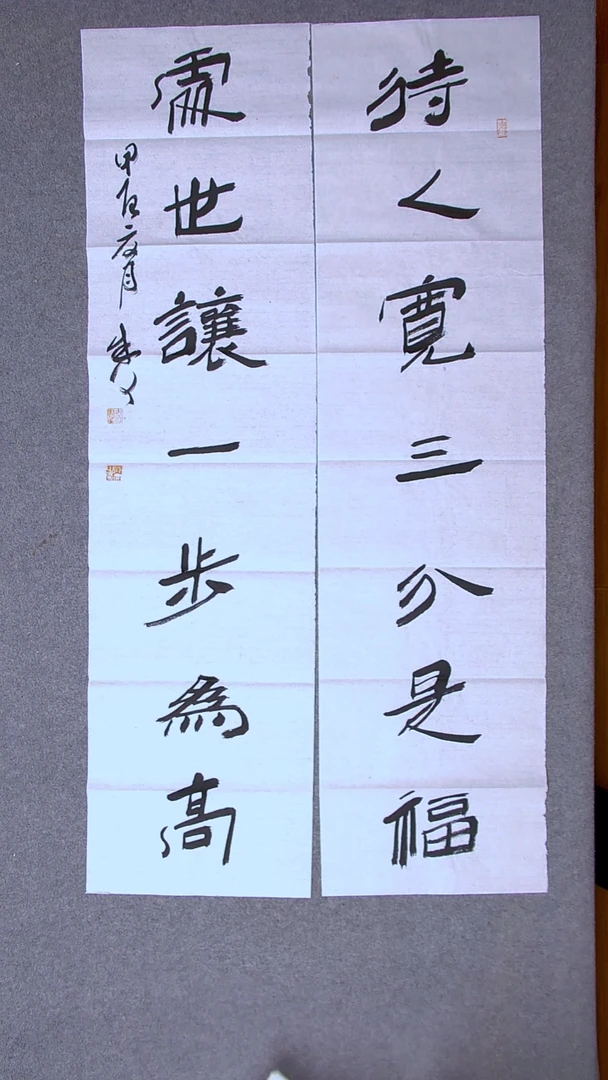 待人寬三分是福
處世讓一步為高
甲辰六月